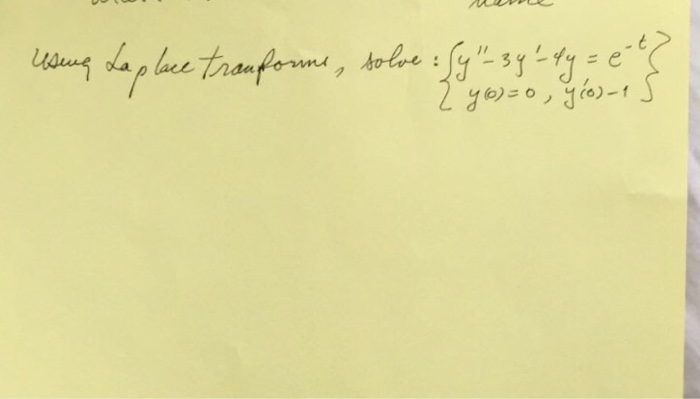 Using Laplace Tranforms, solve : { y'' - 3y' - 4y = e^-t }
{ y(0) = 0 , y'(0) - 1 }